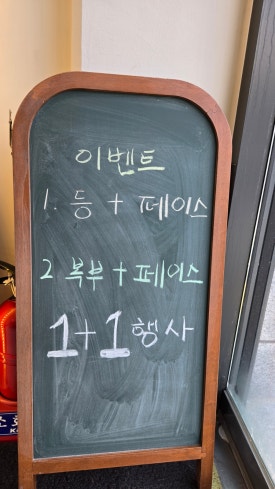 이벤트
1. 등 + 페이스
2 복부 + 페이스
1+1 행사
소화